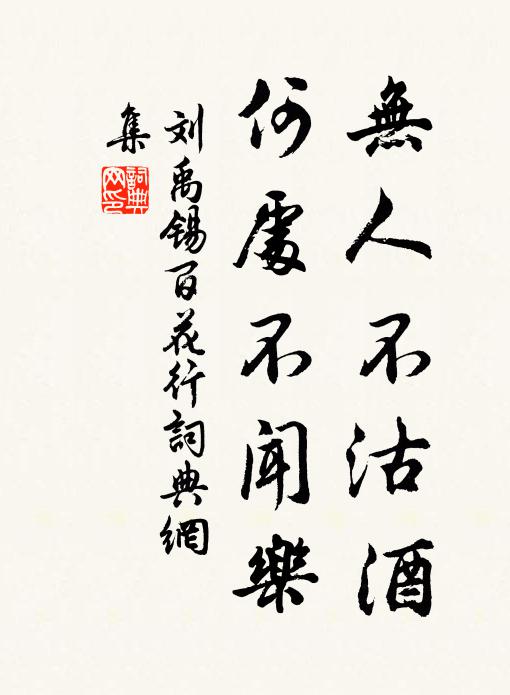 無人不沽酒
何處不闻樂
刘禹锡百花行詞典網
集
詞典网印